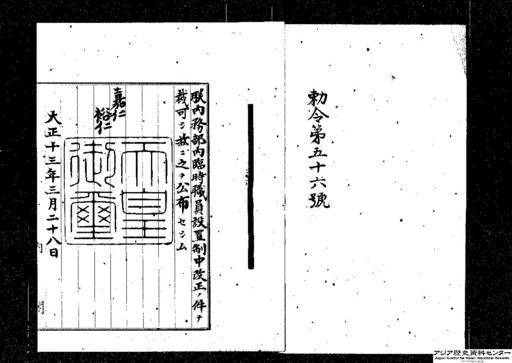 勅令第五十六號
朕内務部内臨時職員設置制中改正ノ件ヲ
裁可シ茲ニ之ヲ公布セシム
嘉仁
裕仁
天皇
御璽
大正十三年三月二十八日
内
閣
アジア歴史資料センター
Japan Center for Asian Historical Records